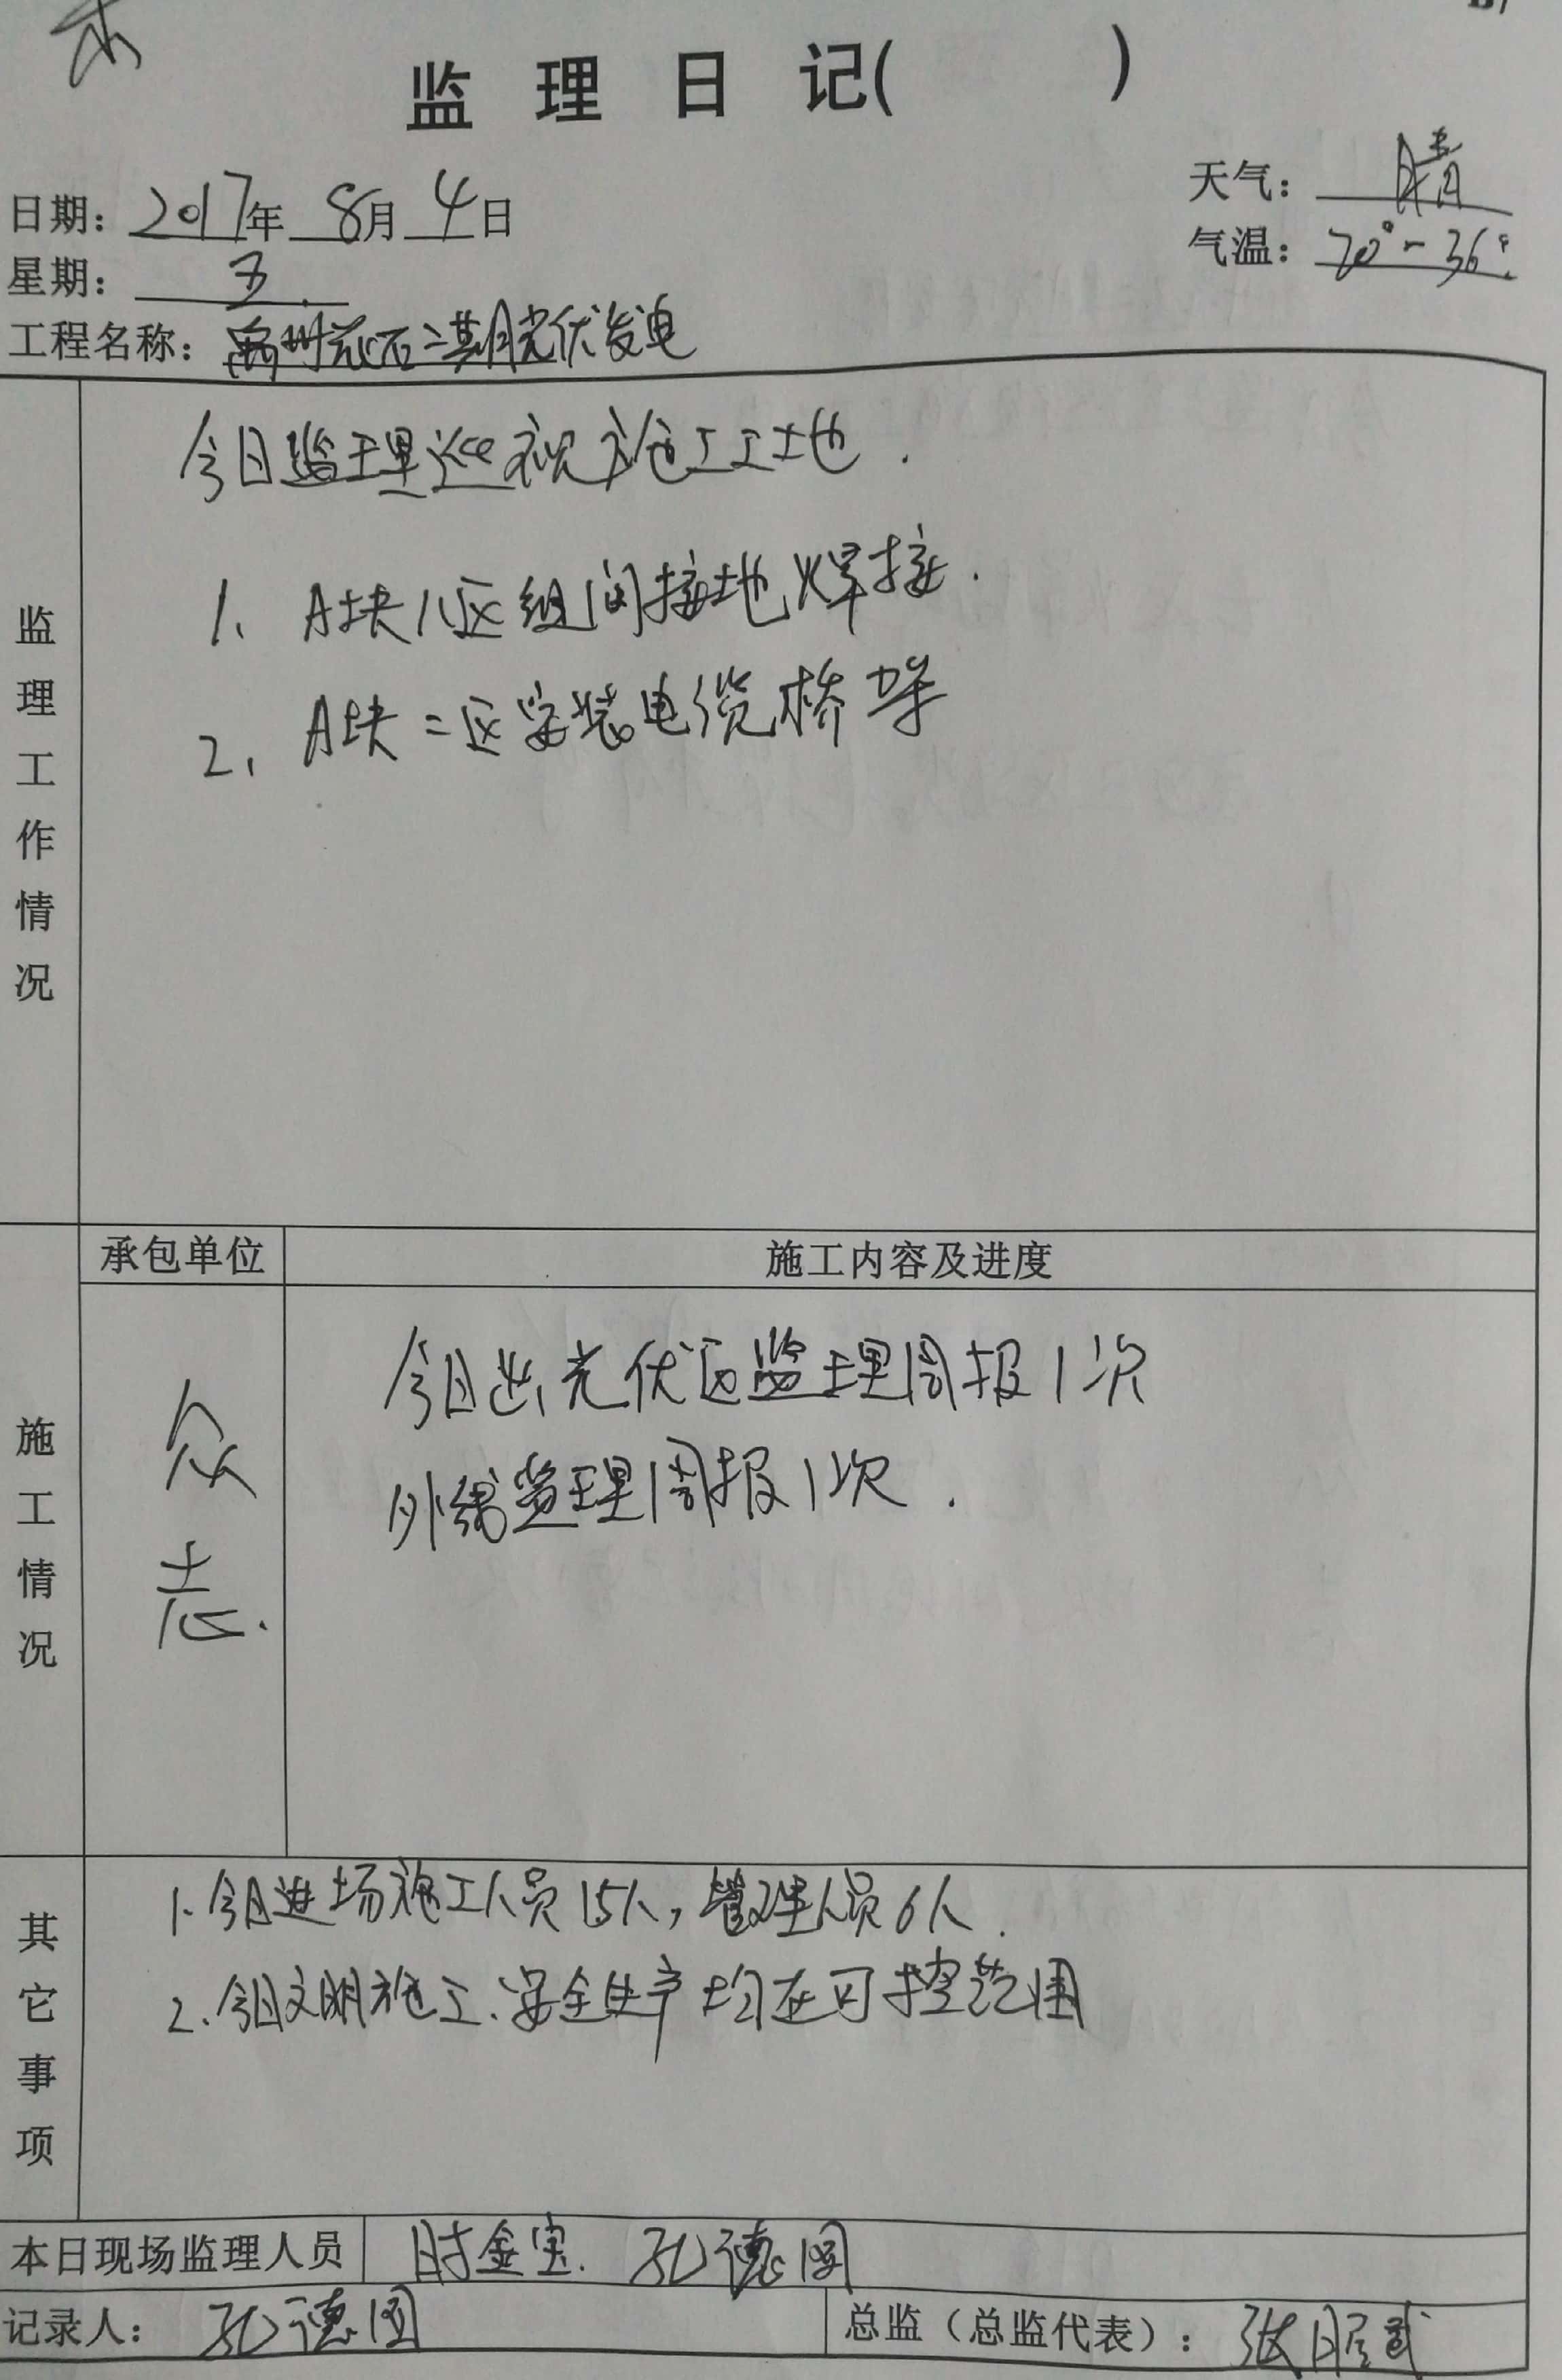 监理日记( )
日期：2017年 8月 4日
天气：晴
星期：五
气温：20°-36°
工程名称：禹州芯石二期光伏发电
今日监理巡视施工工地.
监理工作情况
1、A块1区组间接地焊接.
2、A块二区安装电缆桥架
承包单位
施工内容及进度
施工情况
众志.
今日出光伏区监理周报1次
外线监理周报1次.
其它事项
1.今日进场施工人员15人，管理人员6人.
2.今日文明施工、安全生产均在可控范围
本日现场监理人员 时金宝. 孔德国
记录人：孔德国
总监（总监代表）：张